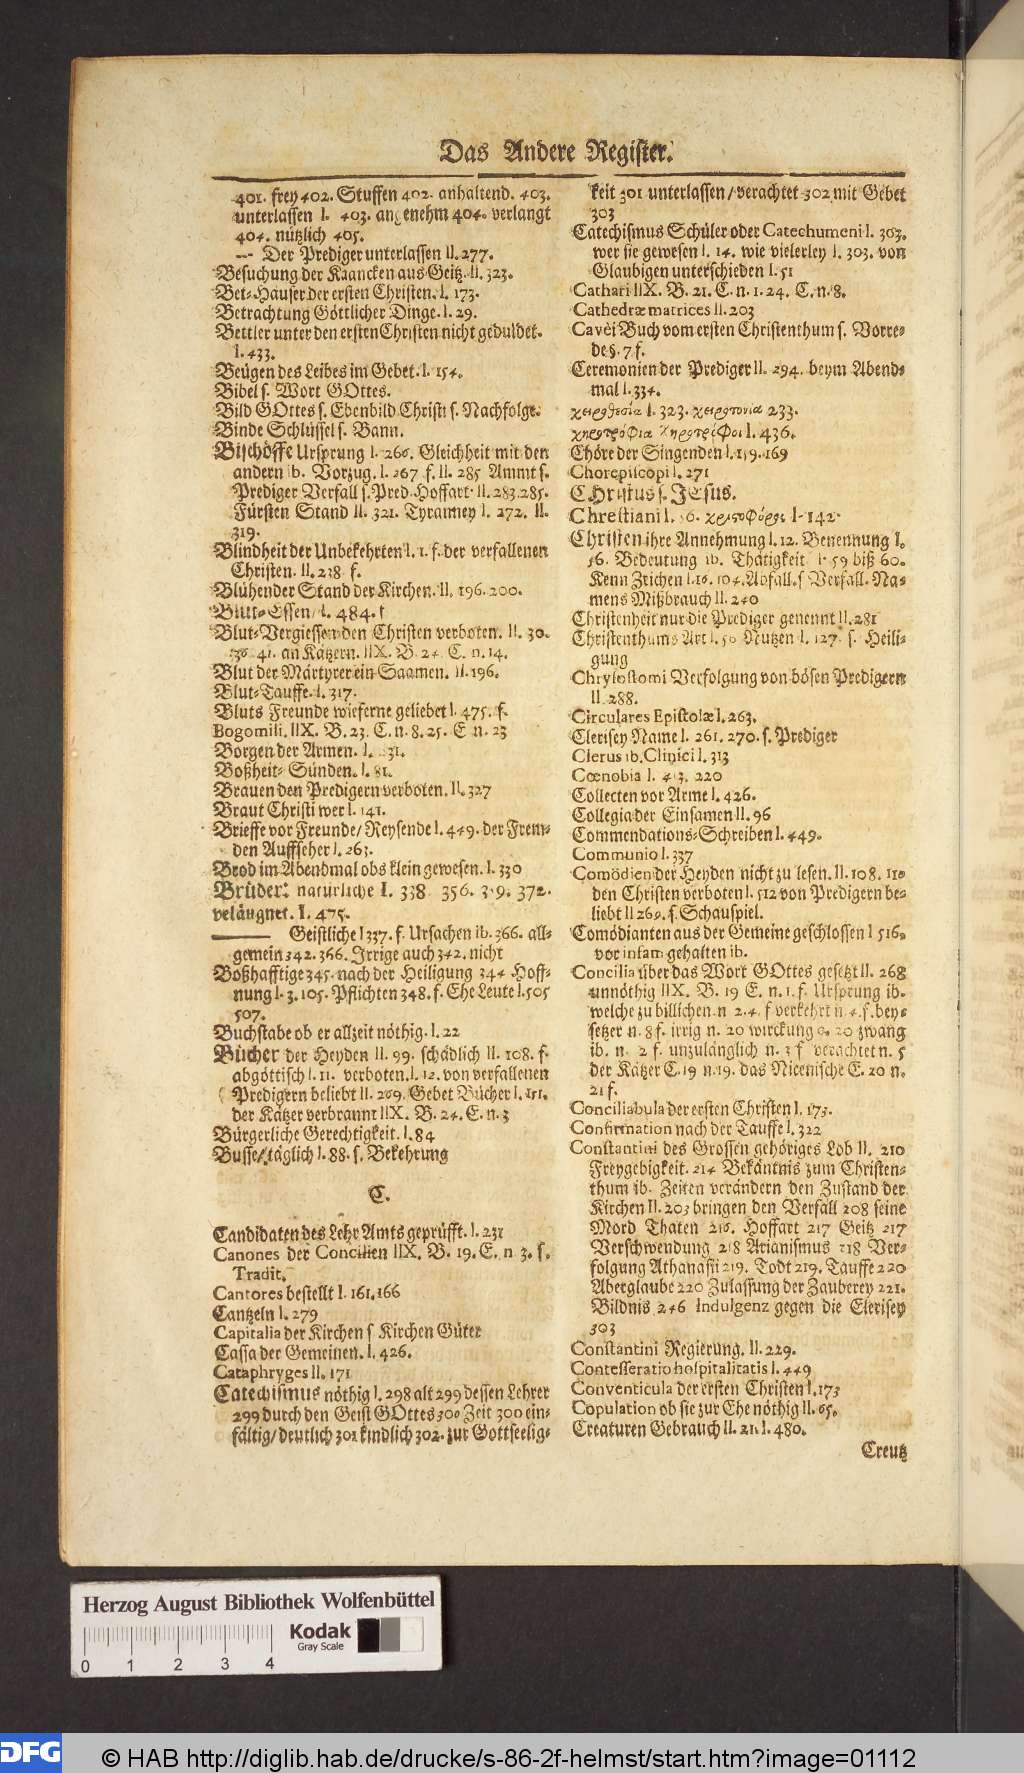 Das Andere Register.
401. frey 402. Stuffen 402. anhaltend. 403.
unterlassen I. 403. angenehm 404. verlangt
404. nützlich 405.
--- Der Prediger unterlassen II. 277.
Besuchung der Krancken aus Geitz. II. 323.
Bet-Häuser der ersten Christen. I. 173.
Betrachtung Göttlicher Dinge. I. 29.
Bettler unter den ersten Christen nicht geduldet.
I. 433.
Beügen des Leibes im Gebet. I. 154.
Bibel s. Wort GOttes.
Bild GOttes s. Ebenbild Christi s. Nachfolge.
Binde Schlüssel s. Bann.
Bischöffe Ursprung I. 266. Gleichheit mit den
andern ib. Vorzug. I. 267. f. II. 285 Ammt s.
Prediger Verfall s. Pred. Hoffart II. 283. 285.
Fürsten Stand II. 321. Tyranney I. 272. II.
319.
Blindheit der Unbekehrten I. 1. f. der verfallenen
Christen. II. 238. f.
Blühender Stand der Kirchen. II. 196. 200.
Blut-Essen I. 484. f
Blut-Vergiessen den Christen verboten. II. 30.
36. 41. an Kätzern. IIX. B. 24. C. n. 14.
Blut der Märtyrer ein Saamen. II. 196.
Blut-Tauffe. I. 317.
Bluts Freunde wieferne geliebet I. 475. f.
Bogomili. IIX. B. 23. C. n. 8. 25. E n. 23
Borgen der Armen. I. 31.
Boßheit-Sünden. I. 81.
Brauen den Predigern verboten. II. 327
Braut Christi wer I. 141.
Brieffe vor Freunde/ Reysende I. 449. der Frem-
den Auffseher I. 263.
Brod im Abendmal obs klein gewesen. I. 330
Brüder: natürliche I. 338 356. 39. 372.
veläugnet. I. 475.
Geistliche I 337. f. Ursachen ib. 366. all-
gemein 342. 366. Irrige auch 342. nicht
Boßhafftige 345. nach der Heiligung 344 Hoff-
nung I. 3. 105. Pflichten 348. f. Ehe Leute I. 505
507.
Buchstabe ob er allzeit nöthig. I. 22
Bücher der Heyden II. 99. schädlich II. 108. f.
abgöttisch I. 11. verboten. I. 12. von verfallenen
Predigern beliebt II. 269. Gebet Bücher I. 151.
der Kätzer verbrannt IIX. B. 24. E. n. 3
Bürgerliche Gerechtigkeit. I. 84
Busse/ täglich I. 88. s. Bekehrung
C.
Candidaten des Lehr Amts geprüfft. I. 231
Canones der Concilien IIX. B. 19. E. n 3. s.
Tradit.
Cantores bestellt I. 161. 166
Cantzeln I. 279
Capitalia der Kirchen s Kirchen Güter
Cassa der Gemeinen. I. 426.
Cataphryges II. 171
Catechismus nöthig I. 298 alt 299 dessen Lehrer
299 durch den Geist GOttes 300 Zeit 300 ein-
fältig/ deutlich 301 kindlich 302. zur Gottseelig-
keit 301 unterlassen/ verachtet 302 mit Gebet
303
Catechismus Schüler oder Catechumeni I. 303.
wer sie gewesen I. 14. wie vielerley I. 303. von
Glaubigen unterschieden I. 51
Cathari IIX. B. 21. C. n. 1. 24. C. n. 8.
Cathedræ matrices II. 203
Cavei Buch vom ersten Christenthum s. Vorre-
de §. 7 f.
Ceremonien der Prediger II. 294. beym Abend-
mal I. 334.
χειροθεσία I. 323. χειροτονία 233.
I. 436.
Chöre der Singenden I. 159. 169
Chorepiscopi I. 271
CHristus s. JEsus.
Chrestiani I. 56. I. 142.
Christen ihre Annehmung I. 12. Benennung I.
56. Bedeutung ib. Thätigkeit I. 59 biß 60.
Kenn Zeichen I. 16. 104. Abfall. s Verfall. Na-
mens Mißbrauch II. 240
Christenheit nur die Prediger genennt II. 281
Christenthums Art I. 50 Nutzen I. 127. s. Heili-
gung
Chrysostomi Verfolgung von bösen Predigern
II. 288.
Circulares Epistolæ I. 263.
Clerisey Name I. 261. 270. s. Prediger
Clerus ib. Clinici I. 313
Cœnobia I. 413. 220
Collecten vor Arme I. 426.
Collegia der Einsamen II. 96
Commendations-Schreiben I. 449.
Communio I. 337
Comödien der Heyden nicht zu lesen. II. 108. 110
den Christen verboten I. 512 von Predigern be-
liebt II 269. s. Schauspiel.
Comödianten aus der Gemeine geschlossen I 516.
vor infam gehalten ib.
Concilia über das Wort GOttes gesetzt II. 268
unnöthig IIX. B. 19 E. n. 1. f. Ursprung ib.
welche zu billichen. n 2. 4. f verkehrt n 4. f. bey-
setzer n. 8 f. irrig n. 20 wirckung n. 20 zwang
ib. n. 2 f. unzulänglich n. 3 f verachtet n. 5
der Kätzer C. 19 n. 19. das Nicenische E. 20 n.
21 f.
Conciliabula der ersten Christen I. 173.
Confirmation nach der Tauffe I. 322
Constantini des Grossen gehöriges Lob II. 210
Freygebigkeit. 214 Bekäntnis zum Christen-
thum ib. Zeiten verändern den Zustand der
Kirchen II. 203 bringen den Verfall 208 seine
Mord Thaten 216. Hoffart 217 Geitz 217
Verschwendung 218 Arianismus 218 Ver-
folgung Athanasii 219. Todt 219. Tauffe 220
Aberglaube 220 Zulassung der Zauberey 221.
Bildnis 246 Indulgenz gegen die Clerisey
303
Constantini Regierung. II. 229.
Contesseratio hospitalitatis I. 449
Conventicula der ersten Christen I. 173
Copulation ob sie zur Ehe nöthig II. 65.
Creaturen Gebrauch II. 21. I. 480.
Creutz
Herzog August Bibliothek Wolfenbüttel
Kodak
Gray Scale
0 1 2 3 4
DFG
© HAB http://diglib.hab.de/drucke/s-86-2f-helmst/start.htm?image=01112